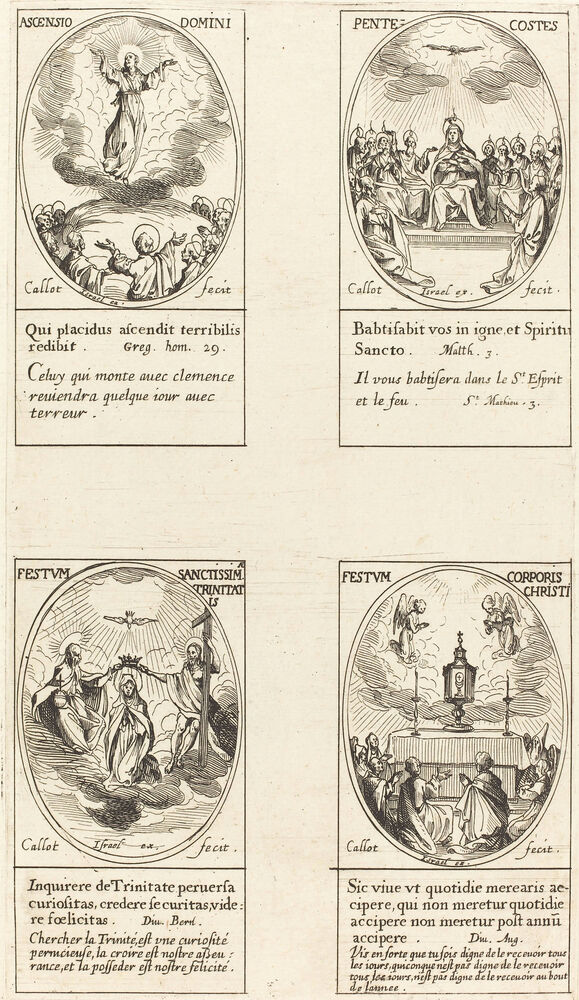 ASCENSIO DOMINI
Callot Israel ex. fecit
Qui placidus ascendit terribilis
redibit . Greg. hom. 29.
Celuy qui monte auec clemence
reuiendra quelque iour auec
terreur .
PENTE= COSTES
Callot Israel ex. fecit.
Babtisabit vos in igne, et Spiritu
Sancto . Matth. 3.
Il vous babtisera dans le St Esprit
et le feu . St Mathieu . 3.
FESTVM SANCTISSIM Æ
TRINITAT
IS
Callot Israel ex. fecit.
Inquirere de Trinitate peruersa
curiositas, credere securitas, vide=
re fœlicitas . Diu. Bern.
Chercher la Trinité, est vne curiosité
pernicieuse, la croire est nostre asseu=
rance, et la posseder est nostre felicité.
FESTVM CORPORIS
CHRISTI
Callot Israel ex. fecit.
Sic viue vt quotidie merearis ac=
cipere, qui non meretur quotidie
accipere non meretur post annũ
accipere . Diu. Aug.
Vis en sorte que tu sois digne de le receuoir tous
les iours, quiconque n'est pas digne de le receuoir
tous les iours, n'est pas digne de le receuoir au bout
de l'annee .